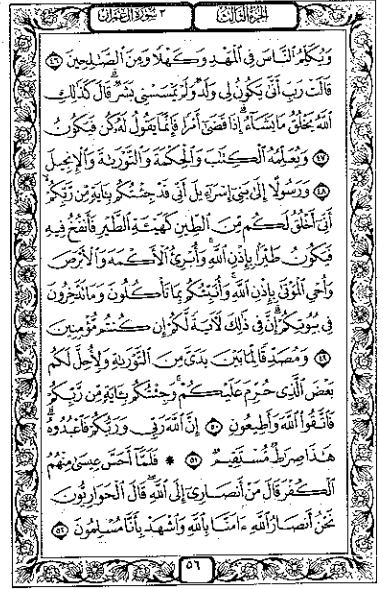 الجزء الثالث
سورة آل عمران ٣
وَيُكَلِّمُ ٱلنَّاسَ فِى ٱلْمَهْدِ وَكَهْلًا وَمِنَ ٱلصَّٰلِحِينَ ٤٦
قَالَتْ رَبِّ أَنَّىٰ يَكُونُ لِى وَلَدٌ وَلَمْ يَمْسَسْنِى بَشَرٌ ۖ قَالَ كَذَٰلِكِ
ٱللَّهُ يَخْلُقُ مَا يَشَآءُ ۚ إِذَا قَضَىٰٓ أَمْرًا فَإِنَّمَا يَقُولُ لَهُۥ كُن فَيَكُونُ
٤٧ وَيُعَلِّمُهُ ٱلْكِتَٰبَ وَٱلْحِكْمَةَ وَٱلتَّوْرَىٰةَ وَٱلْإِنجِيلَ
٤٨ وَرَسُولًا إِلَىٰ بَنِىٓ إِسْرَٰٓءِيلَ أَنِّى قَدْ جِئْتُكُم بِـَٔايَةٍ مِّن رَّبِّكُمْ
أَنِّىٓ أَخْلُقُ لَكُم مِّنَ ٱلطِّينِ كَهَيْـَٔةِ ٱلطَّيْرِ فَأَنفُخُ فِيهِ
فَيَكُونُ طَيْرًۢا بِإِذْنِ ٱللَّهِ ۖ وَأُبْرِئُ ٱلْأَكْمَهَ وَٱلْأَبْرَصَ
وَأُحْىِ ٱلْمَوْتَىٰ بِإِذْنِ ٱللَّهِ ۖ وَأُنَبِّئُكُم بِمَا تَأْكُلُونَ وَمَا تَدَّخِرُونَ
فِى بُيُوتِكُمْ ۚ إِنَّ فِى ذَٰلِكَ لَـَٔايَةً لَّكُمْ إِن كُنتُم مُّؤْمِنِينَ
٤٩ وَمُصَدِّقًا لِّمَا بَيْنَ يَدَىَّ مِنَ ٱلتَّوْرَىٰةِ وَلِأُحِلَّ لَكُم
بَعْضَ ٱلَّذِى حُرِّمَ عَلَيْكُمْ ۚ وَجِئْتُكُم بِـَٔايَةٍ مِّن رَّبِّكُمْ
فَٱتَّقُوا۟ ٱللَّهَ وَأَطِيعُونِ ٥٠ إِنَّ ٱللَّهَ رَبِّى وَرَبُّكُمْ فَٱعْبُدُوهُ ۗ
هَٰذَا صِرَٰطٌ مُّسْتَقِيمٌ ٥١ ۞ فَلَمَّآ أَحَسَّ عِيسَىٰ مِنْهُمُ
ٱلْكُفْرَ قَالَ مَنْ أَنصَارِىٓ إِلَى ٱللَّهِ ۖ قَالَ ٱلْحَوَارِيُّونَ
نَحْنُ أَنصَارُ ٱللَّهِ ءَامَنَّا بِٱللَّهِ وَٱشْهَدْ بِأَنَّا مُسْلِمُونَ ٥٢
٥٦